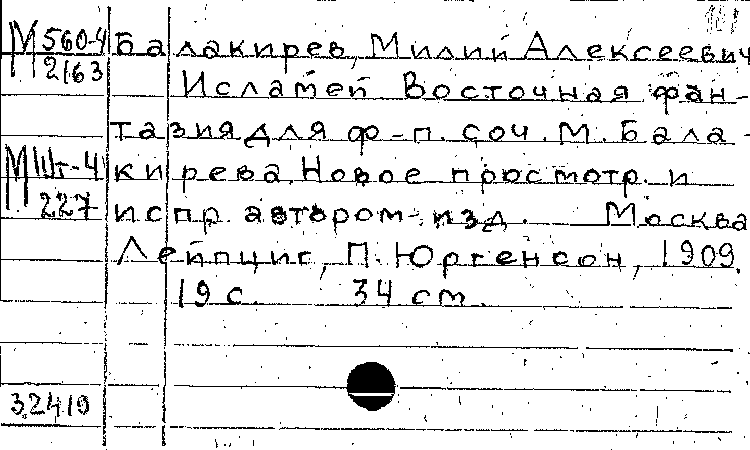 М 560-4 Балакирев, Милий Алексеевич
2163 Исламей Восточная фан-
тазия для ф-п. соч. М. Бала-
М Шт-4 кирева. Новое просмотр. и
227 испр. автором изд. Москва
Лейпциг, П. Юргенсон, 1909.
19 с. 34 см.
32419